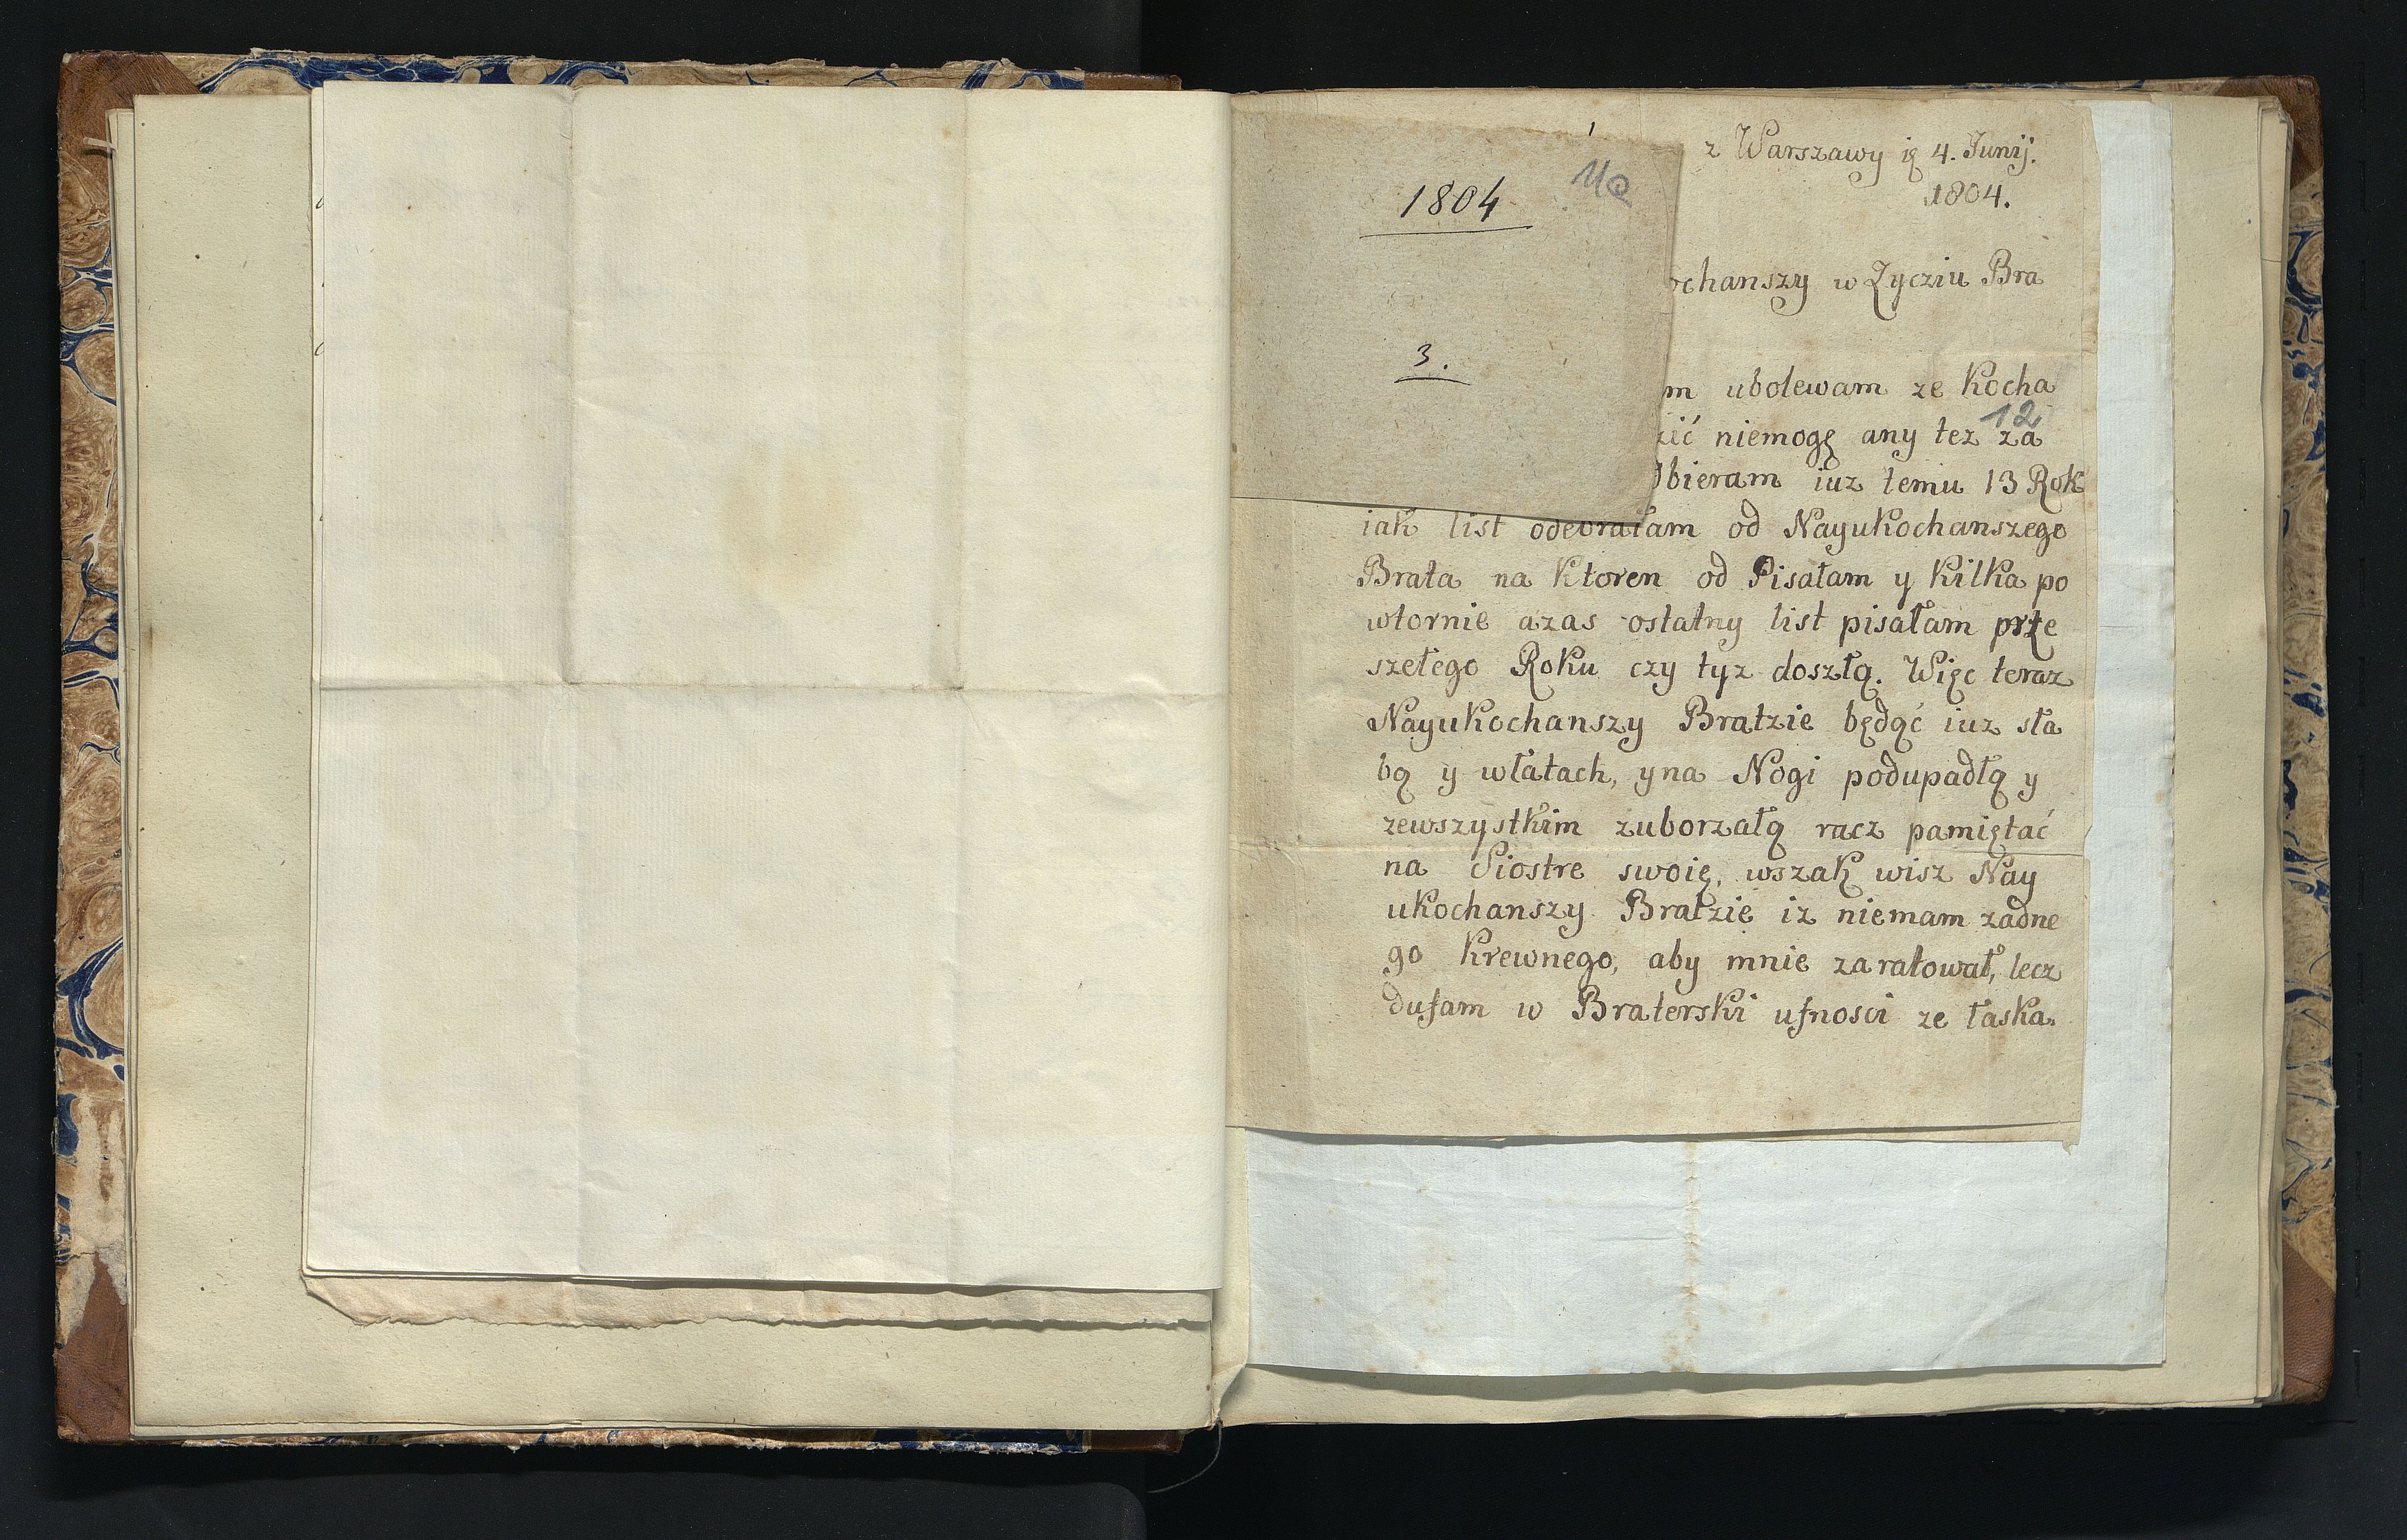 1804
3.
11a
z Warszawy ię 4. Junij.
1804.
ochanszy w Życziu Bra
m ubolewam ze Kocha
12
zić niemogę any tez za
dbieram iuz temu 13 Rok
iak list odebrałam od NayuKochanszego
Brata na Ktoren od Pisałam y KilKa po
wtornie azas ostatny list pisałam prze
szełego RoKu czy tyz doszłą. Więc teraz
NayuKochanszy Bratzie będąć iuz sła
bą y włatach, yna Nogi podupadłą y
zewszystkim zuborzałą racz pamiętać
na Siostre swoię, wszaK wisz Nay
uKochanszy Bratzie iz niemam zadne
go Krewnego, aby mnie zaratował, lecz
dufam w BratersKi ufnosci ze łaska